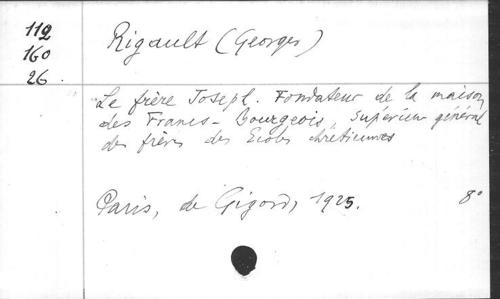 112
160
26
Rigault (Georges)
Le frère Joseph. Fondateur de la maison
des Francs-Bourgeois, Supérieur général
des frères des Ecoles chrétiennes
Paris, de Gigord, 1925. 8°